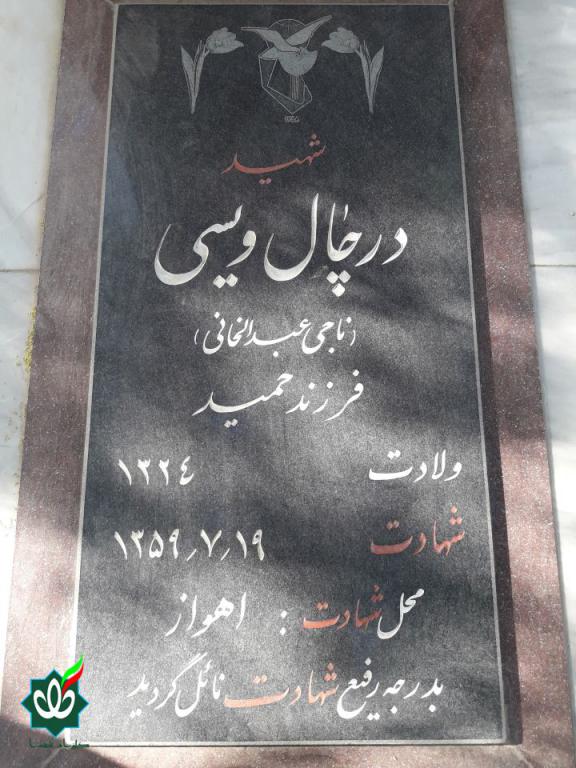 شهید
درچال ویسی
(ناجی عبدالخانی)
فرزند حمید
ولادت ۱۳۲۴
شهادت ۱۳۵۹٫۷٫۱۹
محل شهادت : اهواز
بدرجه رفیع شهادت نائل گردید